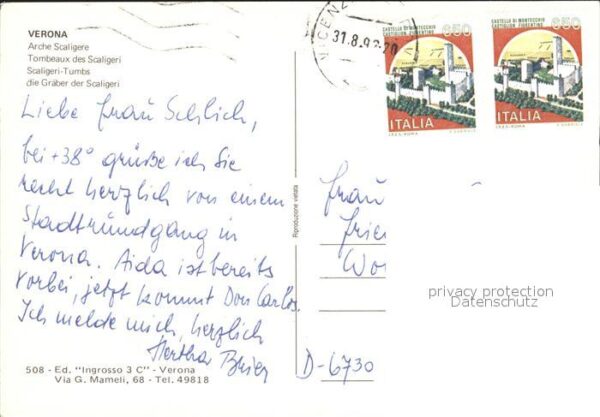 VERONA
Arche Scaligere
Tombeaux des Scaligeri
Scaligeri-Tumbs
die Gräber der Scaligeri
Liebe Frau Schlich,
bei +38° grüße ich Sie
recht herzlich von einem
Stadtrundgang in
Verona. Aida ist bereits
vorbei, jetzt kommt Don Carlos.
Ich melde mich, herzlich
Hertha
508 - Ed. "Ingrosso 3 C" - Verona
Via G. Mameli, 68 - Tel. 49818
Riproduzione vietata
VICENZA
31.8.92-20
CASTELLO DI MONTECCHIO
CASTIGLION FIORENTINO
650
ITALIA
I.P.Z.S. - ROMA
CASTELLO DI MONTECCHIO
CASTIGLION FIORENTINO
650
ITALIA
I.P.Z.S. - ROMA
Frau
Frie
Wor
privacy protection
Datenschutz
D-6730